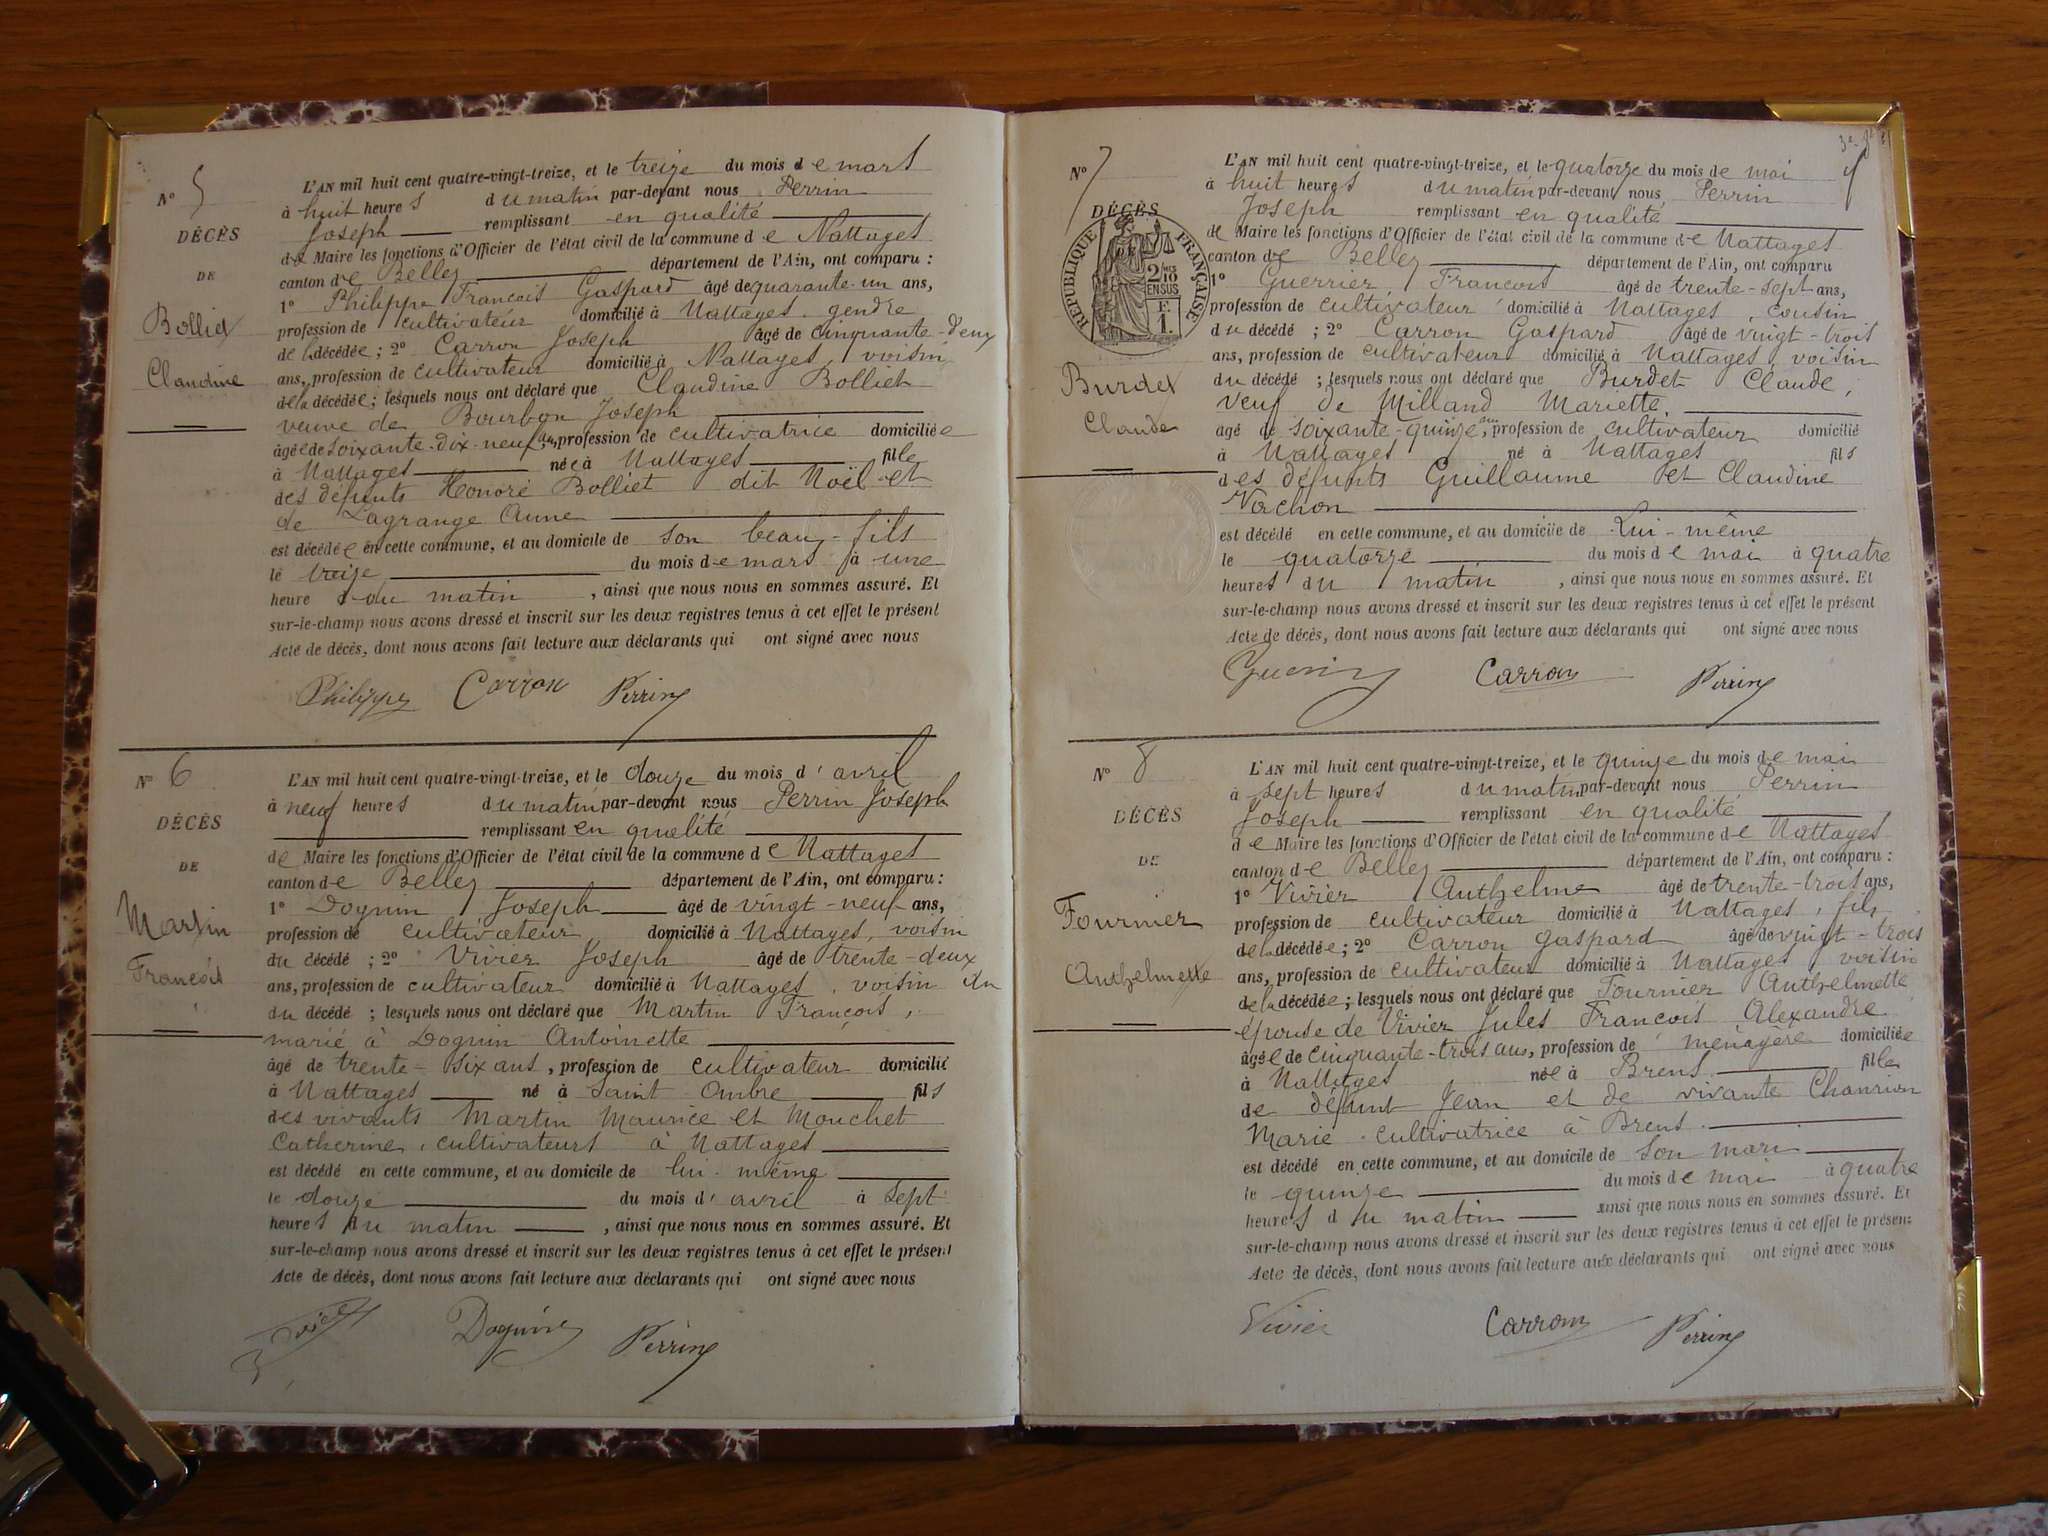 N° 5
DÉCÈS
DE
Bolliet
Claudine
L'AN mil huit cent quatre-vingt-treize, et le treize du mois de mars
à huit heures du matin par-devant nous Perrin
Joseph remplissant en qualité
de Maire les fonctions d'Officier de l'état civil de la commune de Nattages
canton de Belley département de l'Ain, ont comparu :
1° Philippe François Gaspard âgé de quarante-un ans,
profession de cultivateur domicilié à Nattages, gendre
de la décédée ; 2° Carron Joseph âgé de cinquante-deux
ans, profession de cultivateur domicilié à Nattages, voisin
de la décédée ; lesquels nous ont déclaré que Claudine Bolliet
veuve de Bourbon Joseph
âgée de soixante-dix-neuf ans, profession de cultivatrice domiciliée
à Nattages née à Nattages fille
des défunts Honoré Bolliet dit Noël et
de Lagrange Anne
est décédée en cette commune, et au domicile de son beau-fils
le treize du mois de mars à une
heure du matin, ainsi que nous nous en sommes assuré. Et
sur-le-champ nous avons dressé et inscrit sur les deux registres tenus à cet effet le présent
Acte de décès, dont nous avons fait lecture aux déclarants qui ont signé avec nous
Philippe Carron Perrin
N° 6
DÉCÈS
DE
Martin
François
L'AN mil huit cent quatre-vingt-treize, et le douze du mois d'avril
à neuf heures du matin par-devant nous Perrin Joseph
remplissant en qualité
de Maire les fonctions d'Officier de l'état civil de la commune de Nattages
canton de Belley département de l'Ain, ont comparu :
1° Doguin Joseph âgé de vingt-neuf ans,
profession de cultivateur domicilié à Nattages, voisin
du décédé ; 2° Vivier Joseph âgé de trente-deux
ans, profession de cultivateur domicilié à Nattages, voisin du
du décédé ; lesquels nous ont déclaré que Martin François,
marié à Doguin Antoinette
âgé de trente-six ans, profession de cultivateur domicilié
à Nattages né à Saint Ombre fils
des vivants Martin Maurice et Mouchet
Catherine, cultivateurs à Nattages
est décédé en cette commune, et au domicile de lui-même
le douze du mois d'avril à sept
heures du matin, ainsi que nous nous en sommes assuré. Et
sur-le-champ nous avons dressé et inscrit sur les deux registres tenus à cet effet le présent
Acte de décès, dont nous avons fait lecture aux déclarants qui ont signé avec nous
Doguin Perrin
N° 7
DÉCÈS
RÉPUBLIQUE FRANÇAISE
2/10 EN SUS
F. 1.
Burdet
Claude
L'AN mil huit cent quatre-vingt-treize, et le quatorze du mois de mai
à huit heures du matin par-devant nous Perrin
Joseph remplissant en qualité
de Maire les fonctions d'Officier de l'état civil de la commune de Nattages
canton de Belley département de l'Ain, ont comparu
1° Guerrier, François âgé de trente-sept ans,
profession de cultivateur domicilié à Nattages, cousin
du décédé ; 2° Carron Gaspard âgé de vingt-trois
ans, profession de cultivateur domicilié à Nattages voisin
du décédé ; lesquels nous ont déclaré que Burdet Claude,
veuf de Milland Mariette,
âgé de soixante-quinze ans, profession de cultivateur domicilié
à Nattages né à Nattages fils
des défunts Guillaume et Claudine
Vachon
est décédé en cette commune, et au domicile de Lui-même
le quatorze du mois de mai à quatre
heures du matin, ainsi que nous nous en sommes assuré. Et
sur-le-champ nous avons dressé et inscrit sur les deux registres tenus à cet effet le présent
Acte de décès, dont nous avons fait lecture aux déclarants qui ont signé avec nous
Carron Perrin
N° 8
DÉCÈS
DE
Fournier
Anthelmette
L'AN mil huit cent quatre-vingt-treize, et le quinze du mois de mai
à sept heures du matin par-devant nous Perrin
Joseph remplissant en qualité
de Maire les fonctions d'Officier de l'état civil de la commune de Nattages
canton de Belley département de l'Ain, ont comparu :
1° Vivier Anthelme âgé de trente-trois ans,
profession de cultivateur domicilié à Nattages, fils
de la décédée ; 2° Carron Gaspard âgé de vingt-trois
ans, profession de cultivateur domicilié à Nattages voisin
de la décédée ; lesquels nous ont déclaré que Fournier Anthelmette
épouse de Vivier Jules François Alexandre
âgée de cinquante-trois ans, profession de ménagère domiciliée
à Nattages née à Brens fille
de défunt Jean et de vivante Chanrion
Marie cultivatrice à Brens.
est décédé en cette commune, et au domicile de son mari
le quinze du mois de mai à quatre
heures du matin ainsi que nous nous en sommes assuré. Et
sur-le-champ nous avons dressé et inscrit sur les deux registres tenus à cet effet le présent
Acte de décès, dont nous avons fait lecture aux déclarants qui ont signé avec nous
Vivier Carron Perrin